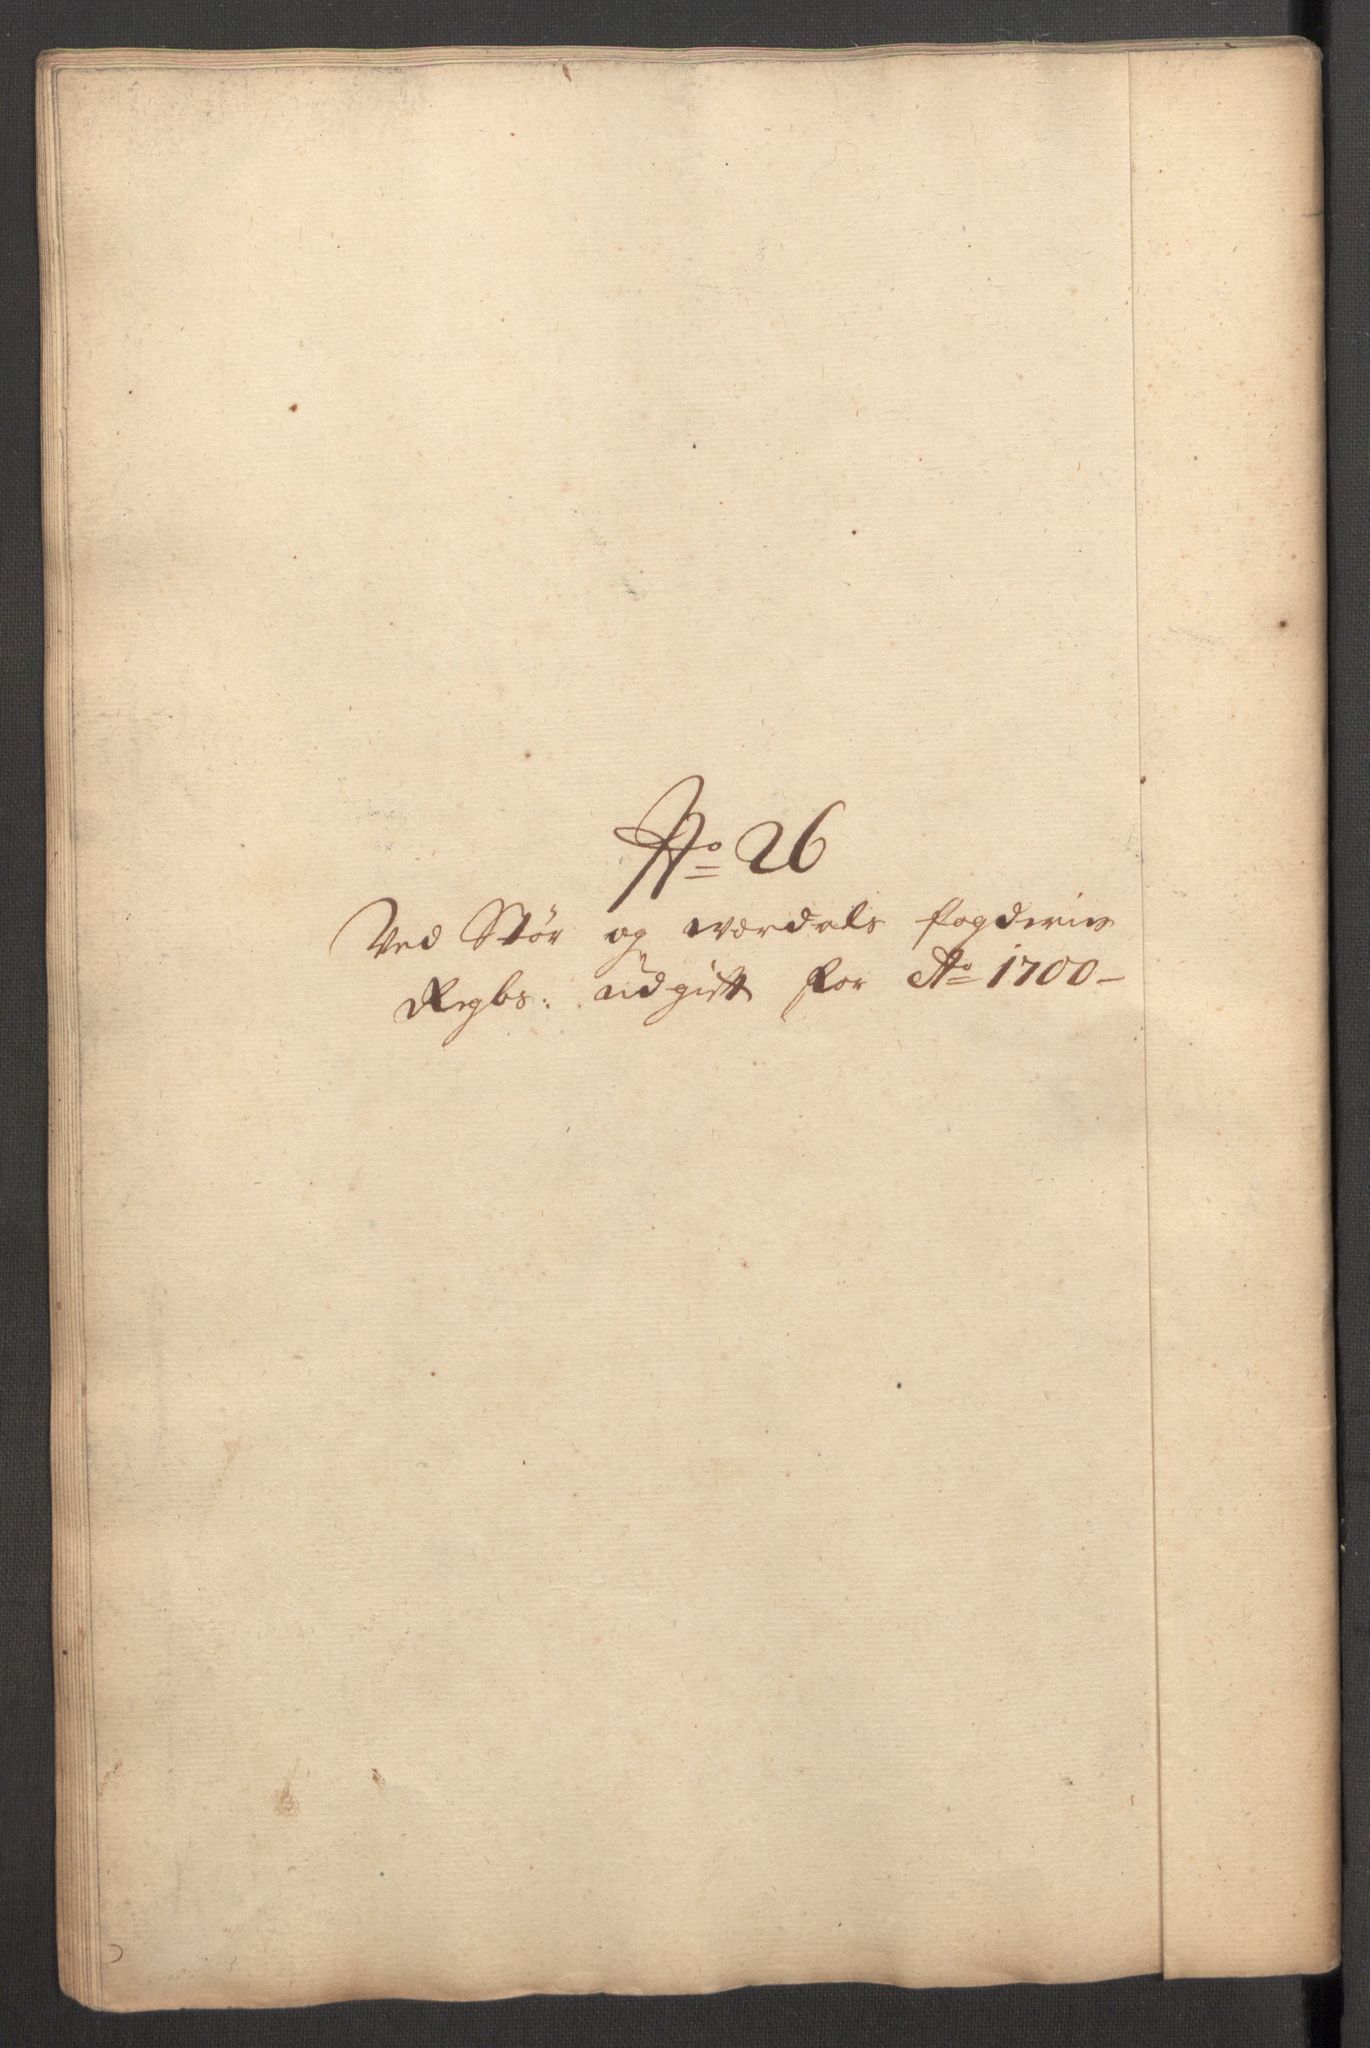 No 26
Ved Stør og Værdals fogderies
Regbs: udgift for Ao 1700-